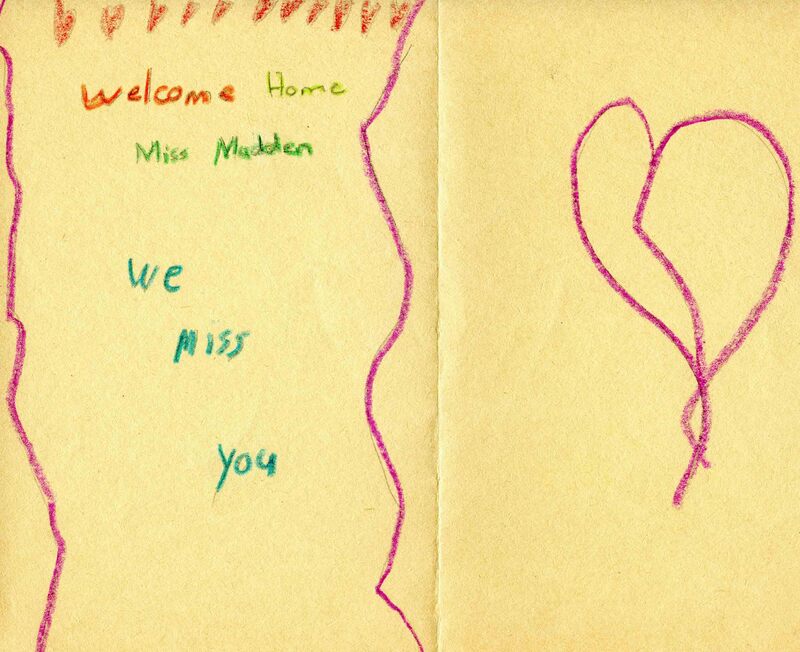 Welcome Home
Miss Madden
We
Miss
you